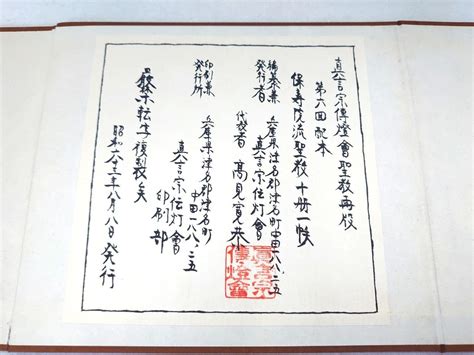 真言宗傳燈會聖教再版
第六回配本
保寿院流聖教 十冊一帙
編纂兼
発行者
兵庫県津名郡津名町
中田一八八、二五
真言宗伝灯會
代表者 高見寛恭
眞言宗
傳燈會
印刷兼
発行所
兵庫県津名郡津名町
中田一八八、二五
真言宗伝灯會
印刷部
転写複製矣
昭和六三年八月八日発行